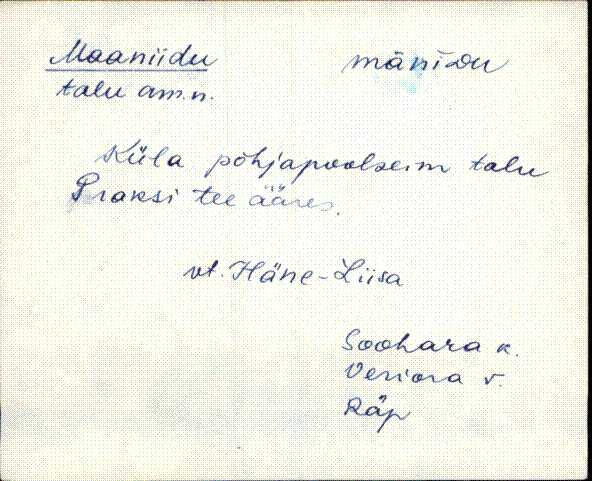 Maaniidu mänidu
talu am.n.
Küla põhjapoolseim talu
Praksi tee ääres.
vt. Häne-Liisa
Soohara k.
Veriora v.
Räp